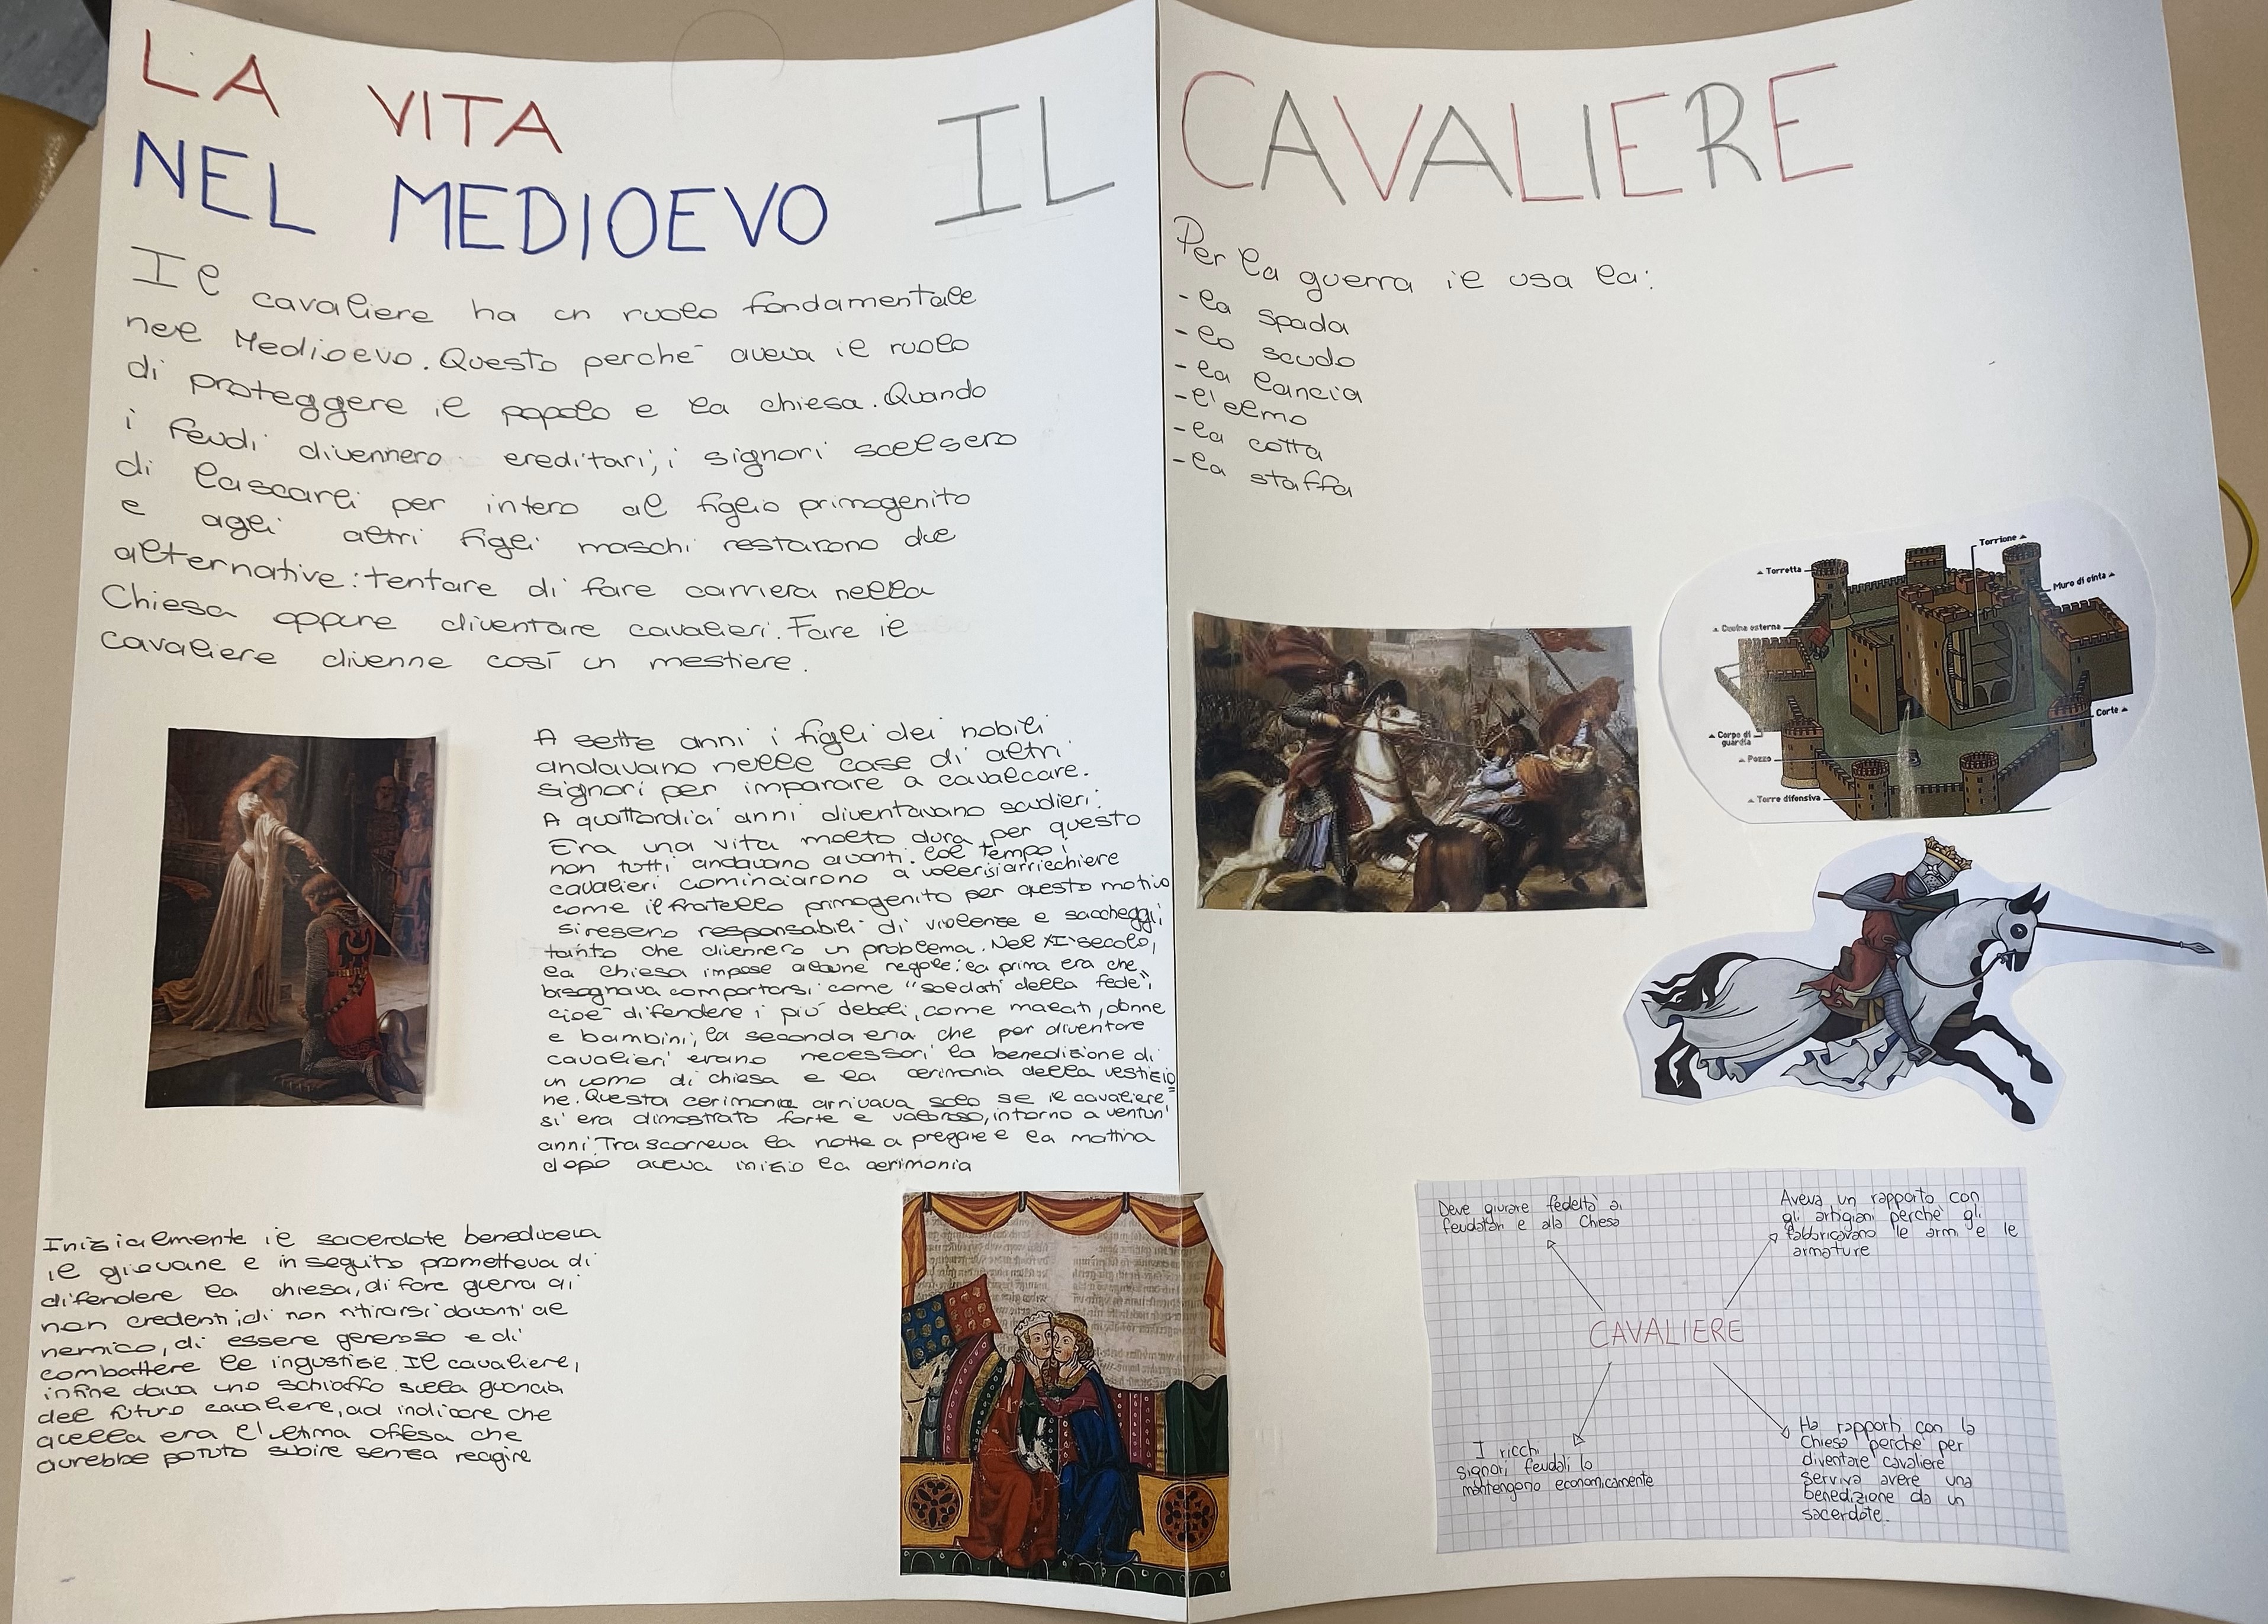 LA VITA
NEL MEDIOEVO
IL CAVALIERE
Il cavaliere ha un ruolo fondamentale
nel Medioevo. Questo perchè aveva il ruolo
di proteggere il popolo e la chiesa. Quando
i feudi divennero ereditari, i signori scelsero
di lascarli per intero al figlio primogenito
e agli altri figli maschi restarono due
alternative: tentare di fare carriera nella
Chiesa oppure diventare cavalieri. Fare il
cavaliere divenne così un mestiere.
A sette anni i figli dei nobili
andavano nelle case di altri
signori per imparare a cavalcare.
A quattordici anni diventavano scudieri.
Era una vita molto dura, per questo
non tutti andavano avanti. Col tempo i
cavalieri cominciarono a volersi arricchiere
come il fratello primogenito per questo motivo
si resero responsabili di violenze e saccheggi,
tanto che divennero un problema. Nel XI secolo,
la chiesa impose alcune regole: la prima era che
bisognava comportarsi come "soldati della fede",
cioè difendere i più deboli, come malati, donne
e bambini; la seconda era che per diventare
cavalieri erano necessari la benedizione di
un uomo di chiesa e la cerimonia della vestizio=
ne. Questa cerimonia arrivava solo se il cavaliere
si era dimostrato forte e valoroso, intorno a ventun'
anni. Trascorreva la notte a pregare e la mattina
dopo aveva inizio la cerimonia
Inizialmente il sacerdote benediceva
il giovane e in seguito prometteva di
difendere la chiesa, di fare guerra ai
non credenti, di non ritirarsi davanti al
nemico, di essere generoso e di
combattere le ingiustizie. Il cavaliere,
infine dava uno schiaffo sulla guancia
del futuro cavaliere, ad indicare che
quella era l'ultima offesa che
avrebbe potuto subire senza reagire
Per la guerra il usa la:
- la spada
- lo scudo
- la lancia
- l'elmo
- la cotta
- la staffa
Torrione
Torretta
Muro di cinta
Cucina esterna
Corte
Corpo di
guardia
Pozzo
Torre difensiva
Deve giurare fedeltà ai
feudatari e alla Chiesa
Aveva un rapporto con
gli artigiani perchè gli
fabbricavano le armi e le
armature
CAVALIERE
I ricchi
signori feudali lo
mantengono economicamente
Ha rapporti con la
Chiesa perchè per
diventare cavaliere
serviva avere una
benedizione da un
sacerdote.